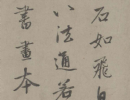 石如飛白
八法通若
書畫本